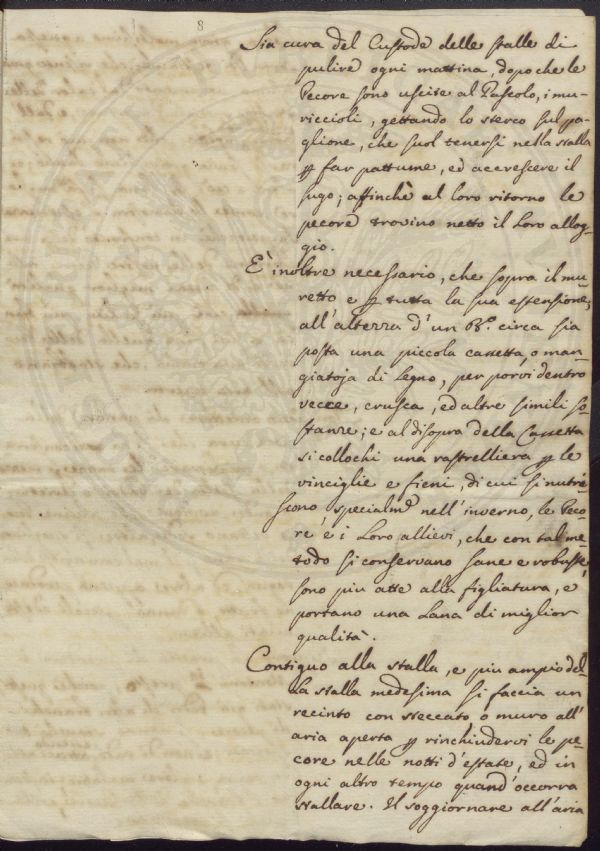 8
Sia cura del Custode delle stalle di
pulire ogni mattina, dopo che le
Pecore sono uscite al Pascolo, i mu-
riccioli, gettando lo sterco sul pa-
glione, che suol tenersi nella stalla
ꝑ far pattume, ed accrescere il
sugo; affinchè al loro ritorno le
pecore trovino netto il loro allog-
gio.
E' inoltre necessario, che sopra il mu-
retto e ꝑ tutta la sua estensione,
all'altezza d'un B.o circa sia
posta una piccola cassetta, o man-
giatoja di legno, per porvi dentro
vecce, crusca, ed altre simili so-
stanze; e al disopra della Cassetta
si collochi una rastrelliera ꝑ le
vinciglie e fieni, di cui si nutri-
scono specialm.e nell'inverno, le Peco-
re e i loro allievi, che con tal me-
todo si conservano sane e robuste,
sono più atte alla figliatura, e
portano una Lana di miglior
qualità.
Contiguo alla stalla, e più ampio del-
la stalla medesima si faccia un
recinto con steccato, o muro all'
aria aperta ꝑ rinchiudervi le pe-
core nelle notti d'estate, ed in
ogni altro tempo quand'occorra
stallare. Il soggiornare all'aria